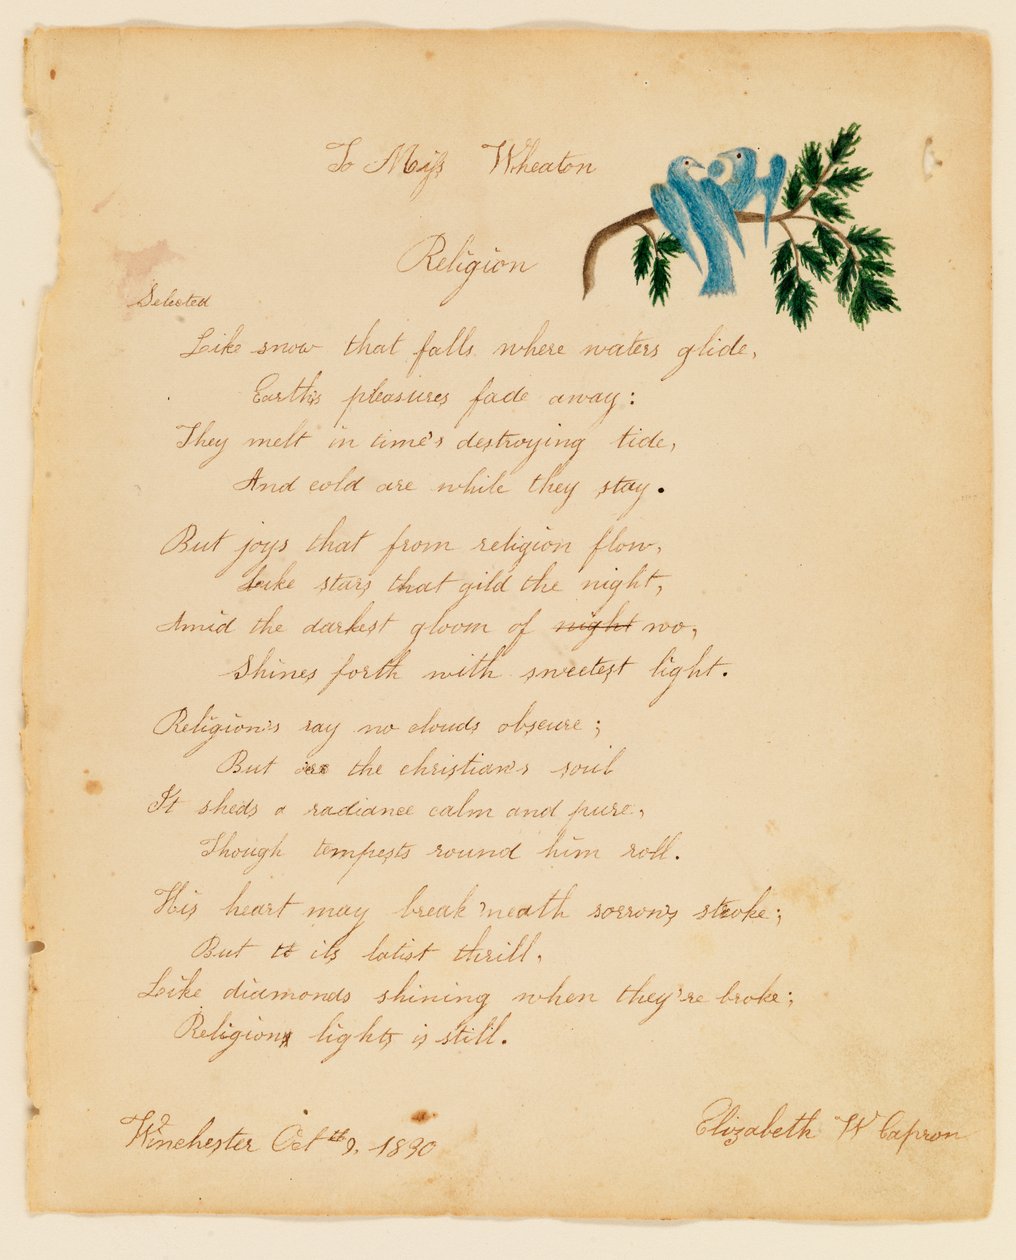 To Miss Wheaton
Religion
Selected
Like snow that falls where waters glide,
Earth's pleasures fade away:
They melt in time's destroying tide,
And cold are while they stay.
But joys that from religion flow,
Like stars that gild the night,
Amid the darkest gloom of night wo,
Shines forth with sweetest light.
Religion's ray no clouds obscure;
But the christian's soul
It sheds a radiance calm and pure,
Though tempests round him roll.
His heart may break 'neath sorrow's stroke;
But to its latist thrill,
Like diamonds shining when they're broke;
Religions lights is still.
Winchester Oct th 9, 1830
Elizabeth W Capron